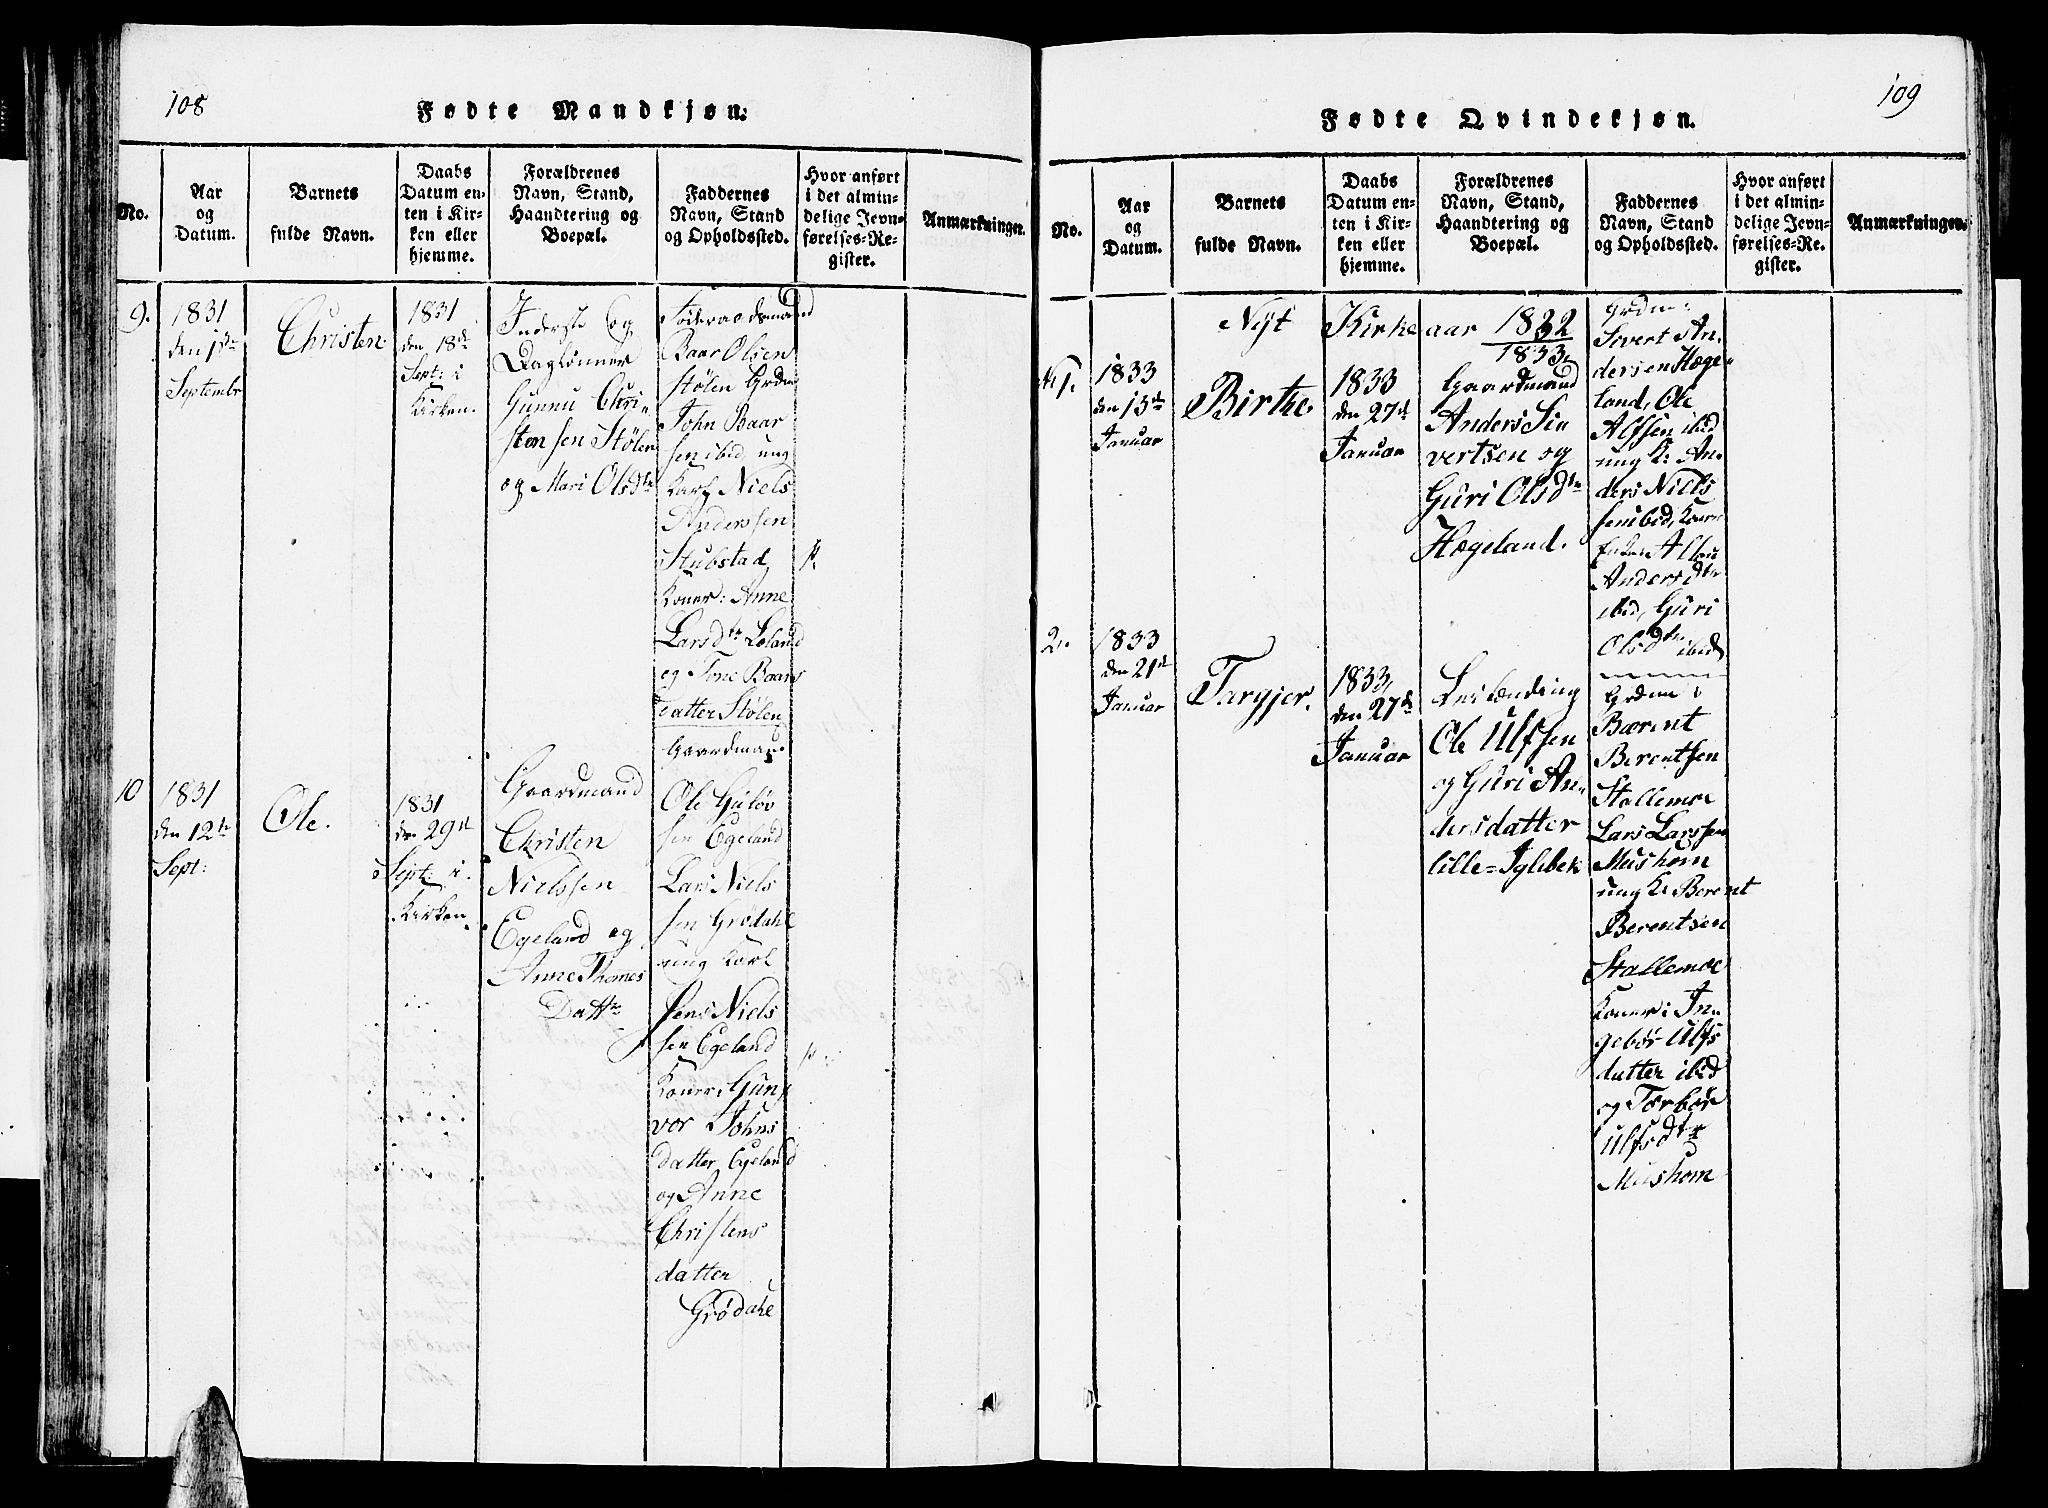 108
Fødte Mandkjøn.
No.
Aar
og
Datum.
Barnets
fulde Navn.
Daabs
Datum en-
ten i Kir-
ken eller
hjemme.
Forældrenes
Navn, Stand,
Haandtering og
Boepæl.
Faddernes
Navn, Stand
og Opholdssted.
Hvor anført
i det almin-
delige Jevn-
førelses-Re-
gister.
Anmærkninger.
9.
1831
den 1ste
Septembr
Christen
1831
den 18de
Sept: i
Kirken.
Inderste og
Daglønner
Gunnu Chri-
stensen Stølen
og Mari Olsdtr
Føderaadsmand
Baar Olsen
Stølen Grdm
John Baar
sen ibid ung
Karl Niels
Anderssen
Stubstad
Koner: Anne
Larsdtr Løland
og Tone Baars
datter Stølen
p.
10
1831
den 12te
Sept:
Ole.
1831
den 29de
Sept: i
Kirken
Gaardmand
Christen
Nielssen
Egeland og
Anne Thomes
Dattr
Gaardman.
Ole Guløv
sen Egeland
Lars Niels
sen Grødahl
ung Karl
Jens Niels
sen Egeland
Koner: Gun
vor Johns
datter Egeland
og Anne
Christens
datter
Grødahl
p.
109
Fødte Qvindekjøn.
No.
Aar
og
Datum.
Barnets
fulde Navn.
Daabs
Datum en-
ten i Kir-
ken eller
hjemme.
Forældrenes
Navn, Stand,
Haandtering og
Boepæl.
Faddernes
Navn, Stand
og Opholdssted.
Hvor anført
i det almin-
delige Jevn-
førelses-Re-
gister.
Anmærkninger.
Nyt Kirkeaar 1832
1833.
No 1.
1833
den 13de
Januar
Birthe
1833
den 27de
Januar
Gaardmand
Anders Siu
vertsen og
Guri Olsdtr
Hægeland.
Grdm:
Sivert An-
dersen Hæge-
land, Ole
Alfsen ibid
ung K: An-
ders Niels
sen ibid, Koner
Anders dtr
ibid, Guri
Olsdtr ibid
2.
1833
den 21de
Januar
Targjer.
1833,
den 27de
Januar
Ole Ulfsen
og Guri An-
dersdatter
lille=Iglebek
Grdm:
Bærent
Berentsen
Stallemoe
Lars Larssen
Mushom
ung K: Berent
Berentsen
Stallemoe
Koner: In-
gebør Ulfs
datter ibid
og Torbør
Ulfsdtr
Mushom